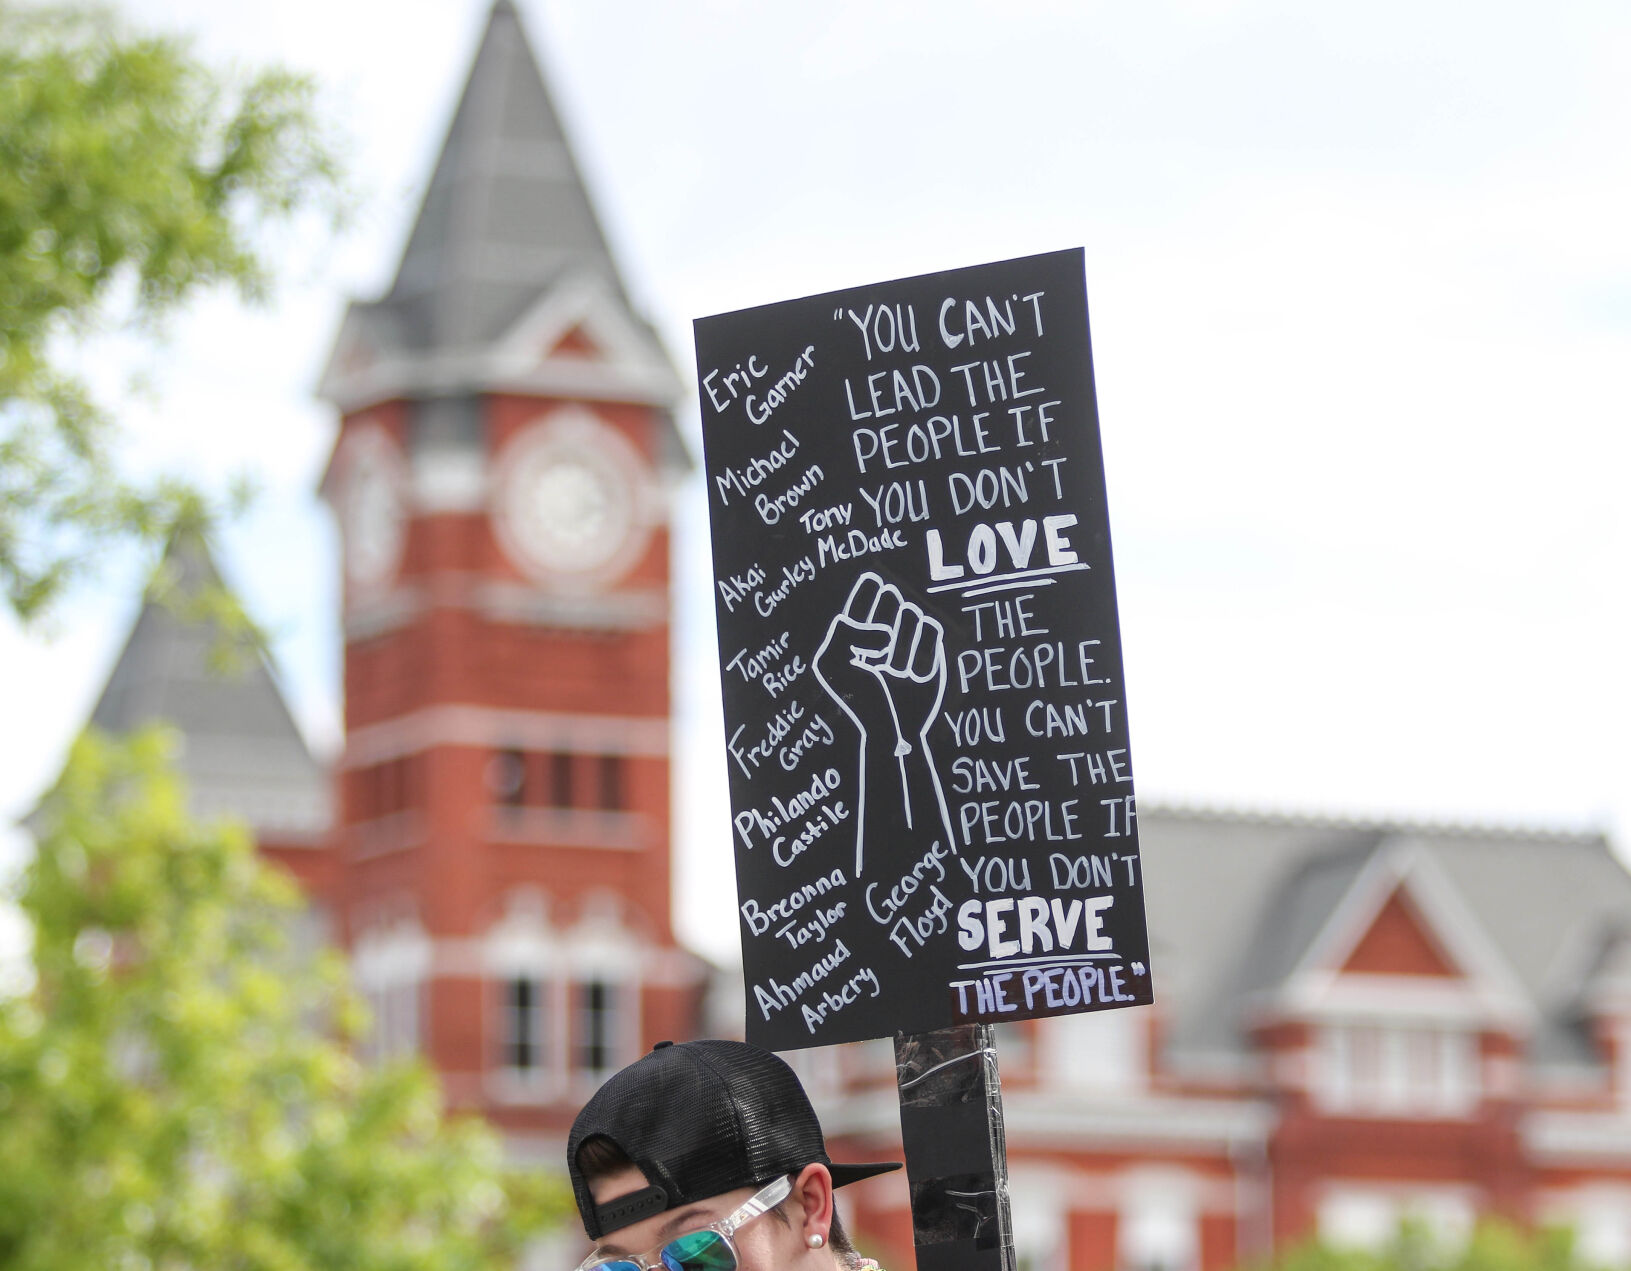 "YOU CAN'T
LEAD THE
PEOPLE IF
YOU DON'T
LOVE
THE
PEOPLE.
YOU CAN'T
SAVE THE
PEOPLE IF
YOU DON'T
SERVE
THE PEOPLE."
Eric
Garner
Michael
Brown
Tony
McDade
Akai
Gurley
Tamir
Rice
Freddie
Gray
Philando
Castile
Breonna
Taylor
George
Floyd
Ahmaud
Arbery